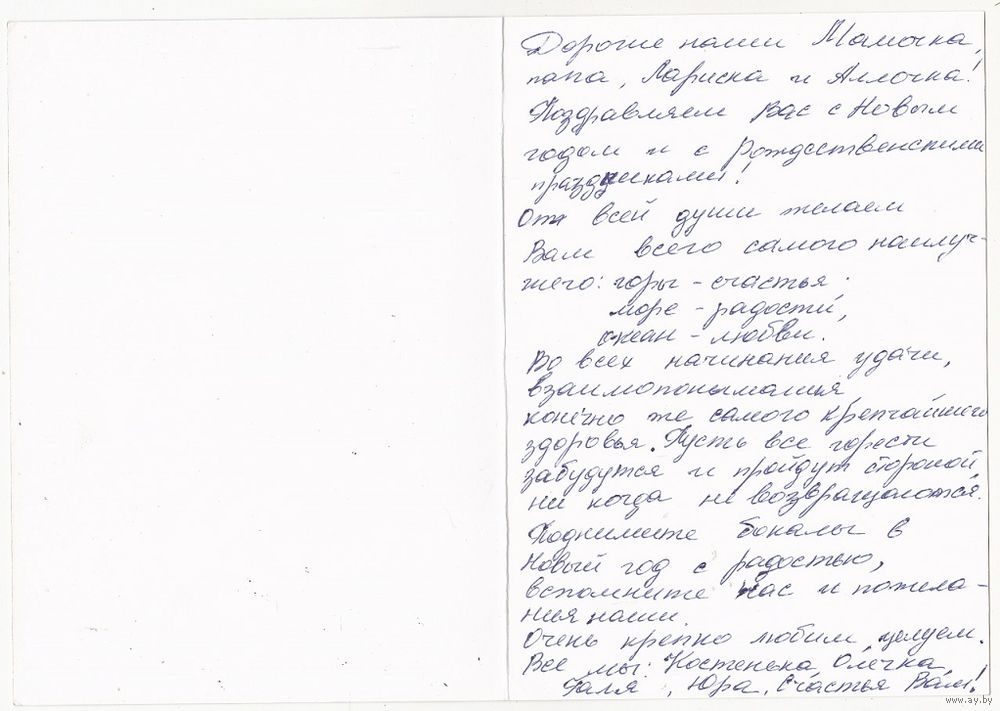 Дорогие наши Мамочка,
папа, Лариска и Аллочка!
Поздравляем Вас с Новым
годом и с Рождественскими
праздниками!
От всей души желаем
Вам всего самого наилуч-
шего: горы - счастья.
море - радости,
океан - любви.
Во всех начинания удачи,
взаимопонимания,
конечно же самого крепчайшего
здоровья. Пусть все горести
забудутся и пройдут стороной,
ни когда не возвращаются.
Поднимите бокалы в
Новый год с радостью,
вспомните нас и пожела-
ния наши.
Очень крепко любим, целуем.
Все мы: Костенька, Олечка,
Галя, Юра. Счастья Вам!
www.ay.by